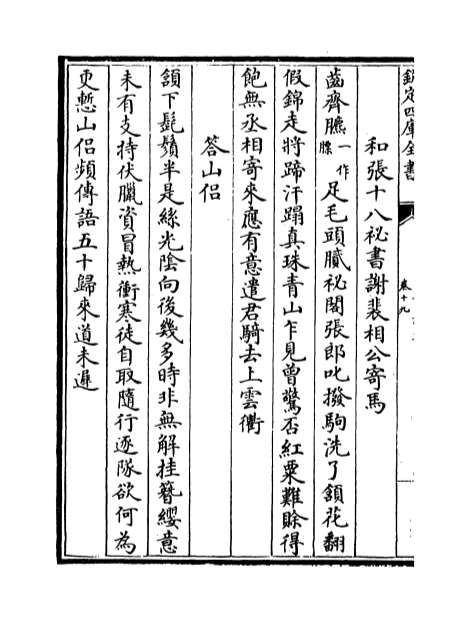 欽定四庫全書
卷十九
和張十八祕書謝裴相公寄馬
齒齊臕一作膘足毛頭膩祕閣張郎叱撥駒洗了頷花翻
假錦走將蹄汗蹋真珠青山乍見曾驚否紅粟難賒得
飽無丞相寄來應有意遣君騎去上雲衢
答山侶
頷下髭鬚半是絲光陰向後幾多時非無解挂簪纓意
未有支持伏臘資冒熱衝寒徒自取隨行逐隊欲何為
更慙山侶頻傳語五十歸來道未遲